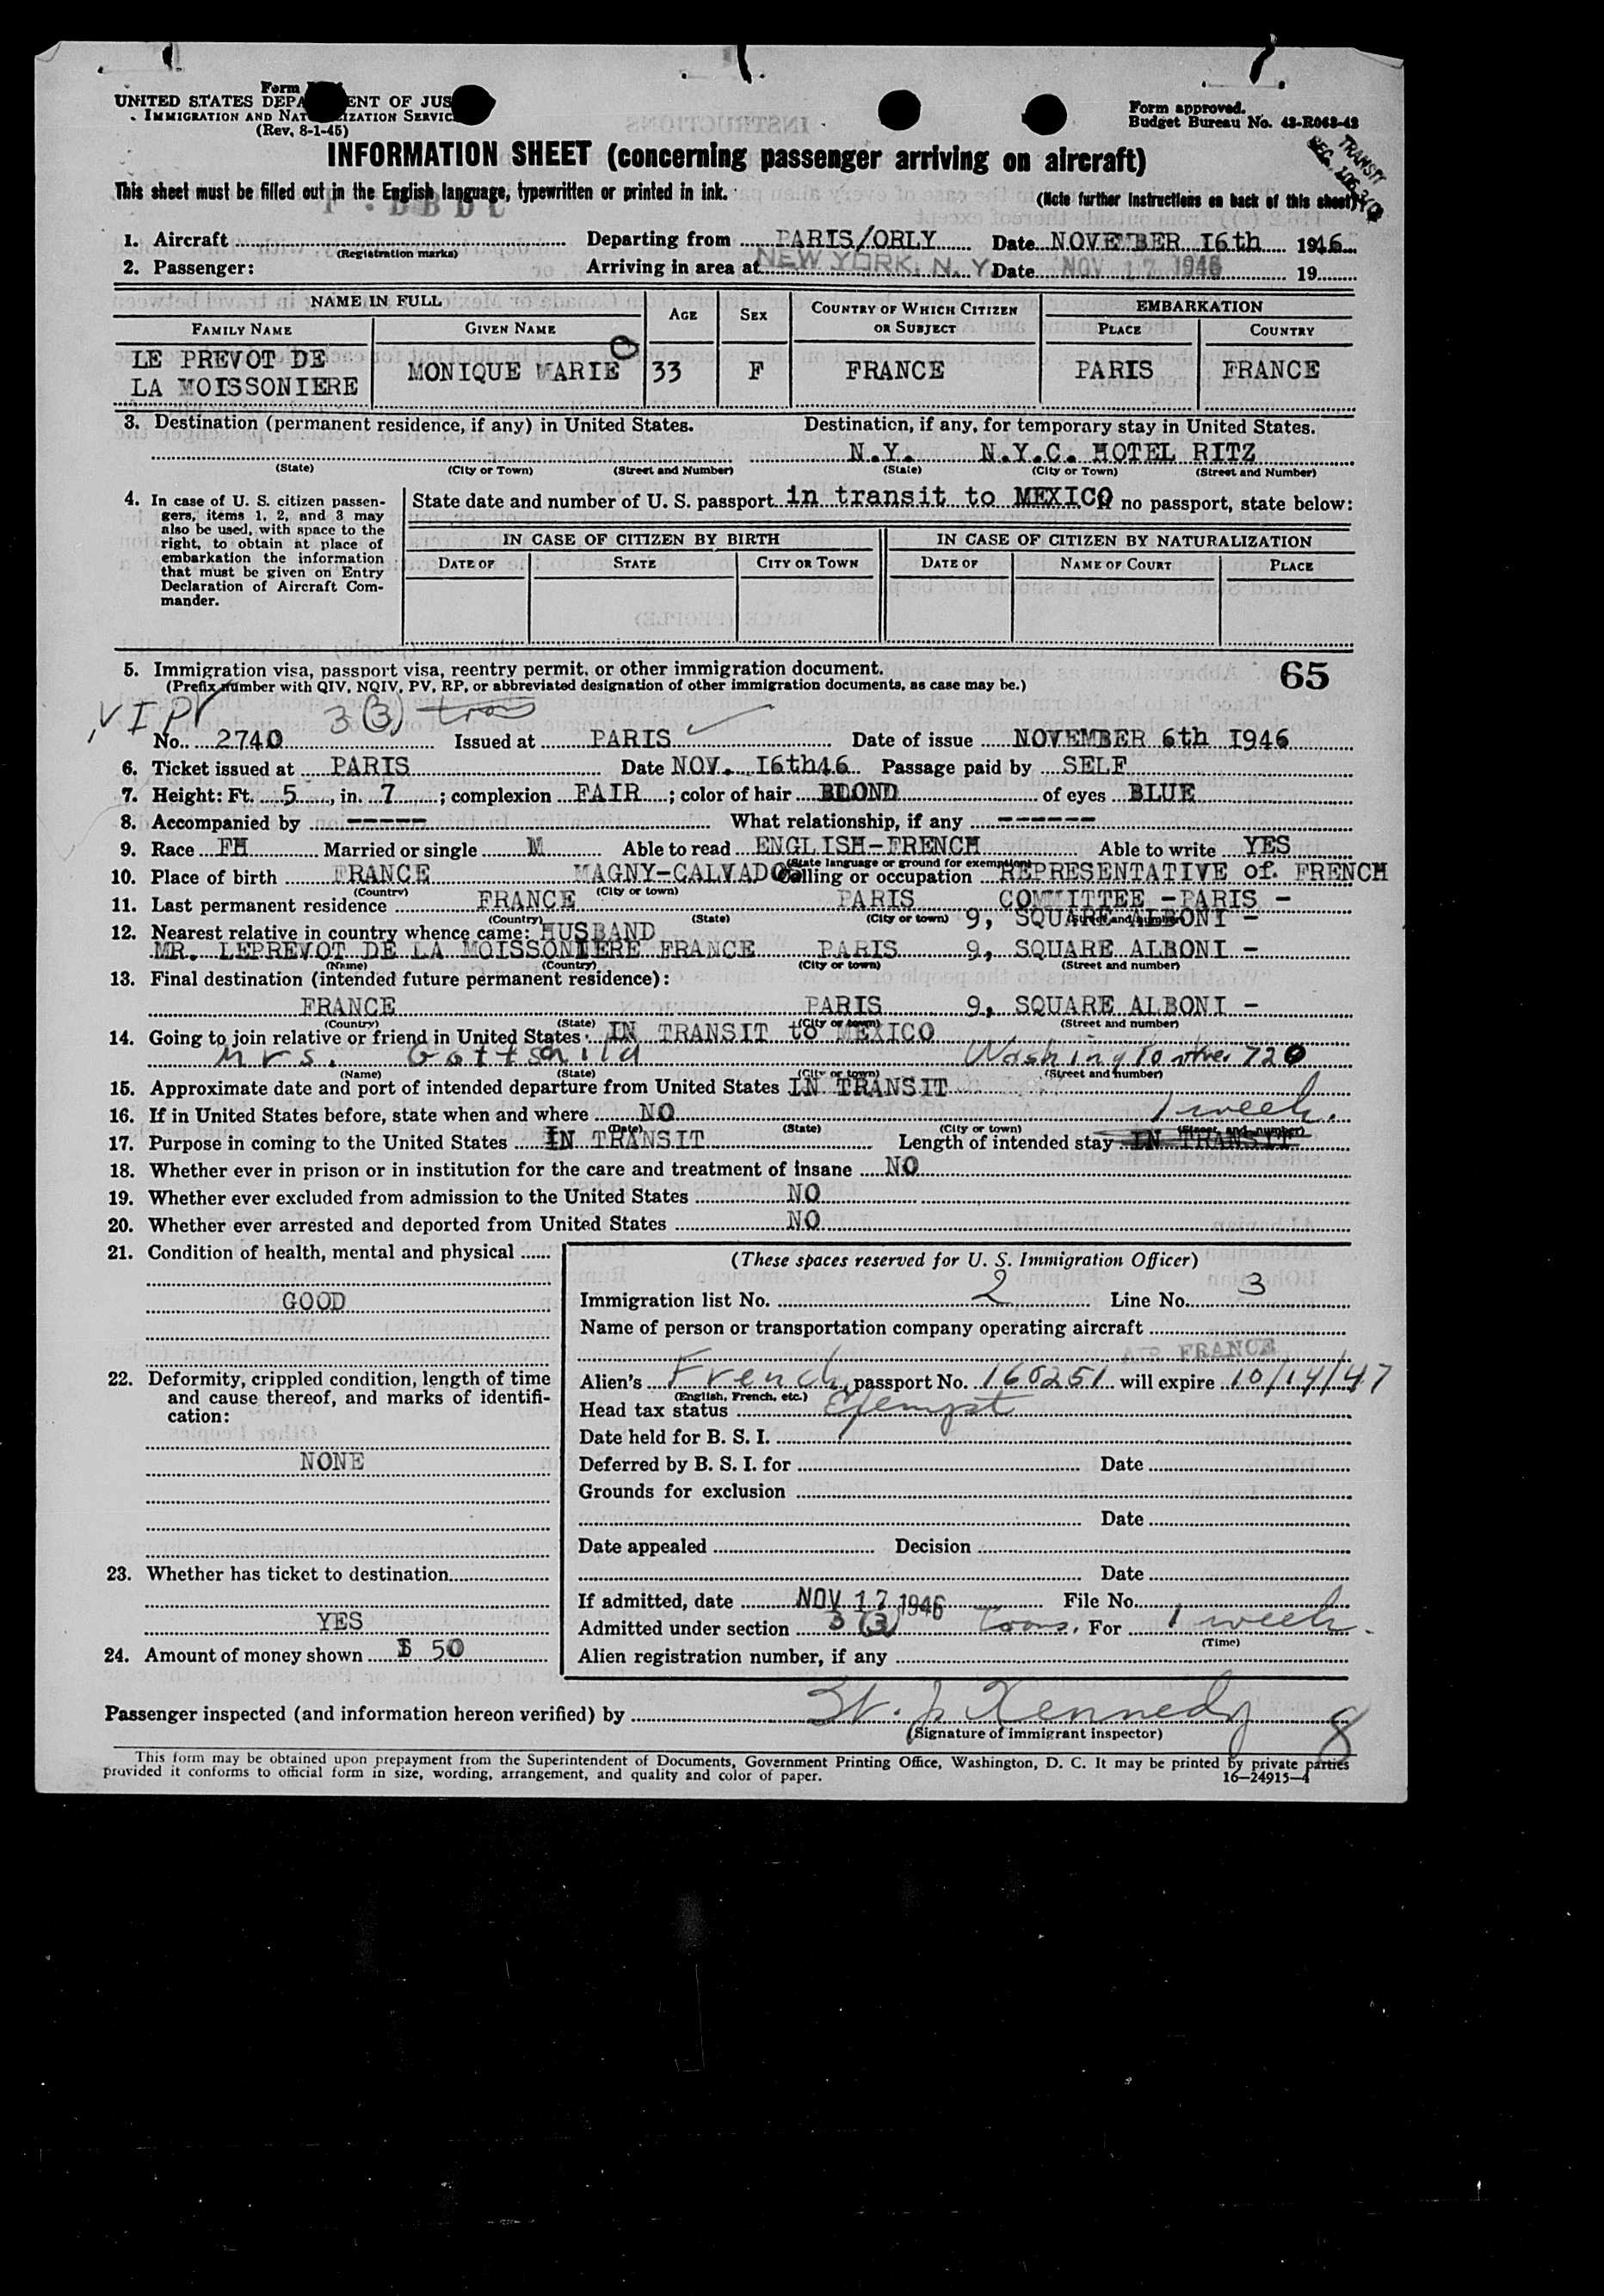 Form
UNITED STATES DEPA ENT OF JUS
IMMIGRATION AND NAT IZATION SERVIC
(Rev. 8-1-45)
Form approved.
Budget Bureau No. 43-R063-42
TRANSIT
INFORMATION SHEET (concerning passenger arriving on aircraft)
This sheet must be filled out in the English language, typewritten or printed in ink.
(Note further instructions on back of this sheet)
1. Aircraft Departing from PARIS/ORLY Date NOVEMBER I6th 1946
(Registration marks)
2. Passenger: Arriving in area at NEW YORK, N. Y Date NOV 17 1946 19
NAME IN FULL AGE SEX COUNTRY OF WHICH CITIZEN OR SUBJECT EMBARKATION
FAMILY NAME GIVEN NAME PLACE COUNTRY
LE PREVOT DE
LA MOISSONIERE MONIQUE MARIE 33 F FRANCE PARIS FRANCE
3. Destination (permanent residence, if any) in United States. Destination, if any, for temporary stay in United States.
N.Y. N.Y.C. HOTEL RITZ
(State) (City or Town) (Street and Number) (State) (City or Town) (Street and Number)
4. In case of U. S. citizen passen-
gers, items 1, 2, and 3 may
also be used, with space to the
right, to obtain at place of
embarkation the information
that must be given on Entry
Declaration of Aircraft Com-
mander.
State date and number of U. S. passport in transit to MEXICO no passport, state below:
IN CASE OF CITIZEN BY BIRTH IN CASE OF CITIZEN BY NATURALIZATION
DATE OF STATE CITY OR TOWN DATE OF NAME OF COURT PLACE
5. Immigration visa, passport visa, reentry permit, or other immigration document. 65
(Prefix number with QIV, NQIV, PV, RP, or abbreviated designation of other immigration documents, as case may be.)
3(3) trans
No. 2740 Issued at PARIS Date of issue NOVEMBER 6th I946
6. Ticket issued at PARIS Date NOV. I6th46 Passage paid by SELF
7. Height: Ft. 5, in. 7; complexion FAIR; color of hair BLOND of eyes BLUE
8. Accompanied by ----- What relationship, if any ------
9. Race FH Married or single M Able to read ENGLISH-FRENCH Able to write YES
(State language or ground for exemption)
10. Place of birth FRANCE MAGNY-CALVADOS Calling or occupation REPRESENTATIVE of FRENCH
(Country) (City or town)
11. Last permanent residence FRANCE PARIS COMMITTEE -PARIS -
(Country) (State) (City or town) 9, SQUARE ALBONI -
12. Nearest relative in country whence came: HUSBAND
MR. LEPREVOT DE LA MOISSONIERE FRANCE PARIS 9, SQUARE ALBONI -
(Name) (Country) (City or town) (Street and number)
13. Final destination (intended future permanent residence):
FRANCE PARIS 9, SQUARE ALBONI -
(Country) (State) (City or town) (Street and number)
14. Going to join relative or friend in United States: IN TRANSIT to MEXICO
Mrs. Gottschild Washington Ave. 720
(Name) (State) (City or town) (Street and number)
15. Approximate date and port of intended departure from United States IN TRANSIT
16. If in United States before, state when and where NO 1 week.
(Date) (State) (City or town) (Street and number)
17. Purpose in coming to the United States IN TRANSIT Length of intended stay IN TRANSIT
18. Whether ever in prison or in institution for the care and treatment of insane NO
19. Whether ever excluded from admission to the United States NO
20. Whether ever arrested and deported from United States NO
21. Condition of health, mental and physical
GOOD
22. Deformity, crippled condition, length of time
and cause thereof, and marks of identifi-
cation:
NONE
23. Whether has ticket to destination
YES
24. Amount of money shown $ 50
(These spaces reserved for U. S. Immigration Officer)
Immigration list No. 2 Line No. 3
Name of person or transportation company operating aircraft
AIR FRANCE
Alien's French, passport No. 160251 will expire 10/14/47
(English, French, etc.)
Head tax status Exempt
Date held for B. S. I.
Deferred by B. S. I. for Date
Grounds for exclusion
Date
Date appealed Decision
Date
If admitted, date NOV 17 1946 File No.
Admitted under section 3 (3) trans. For 1 week.
(Time)
Alien registration number, if any
Passenger inspected (and information hereon verified) by Kennedy 8
(Signature of immigrant inspector)
This form may be obtained upon prepayment from the Superintendent of Documents, Government Printing Office, Washington, D. C. It may be printed by private parties
provided it conforms to official form in size, wording, arrangement, and quality and color of paper. 16—24915-4